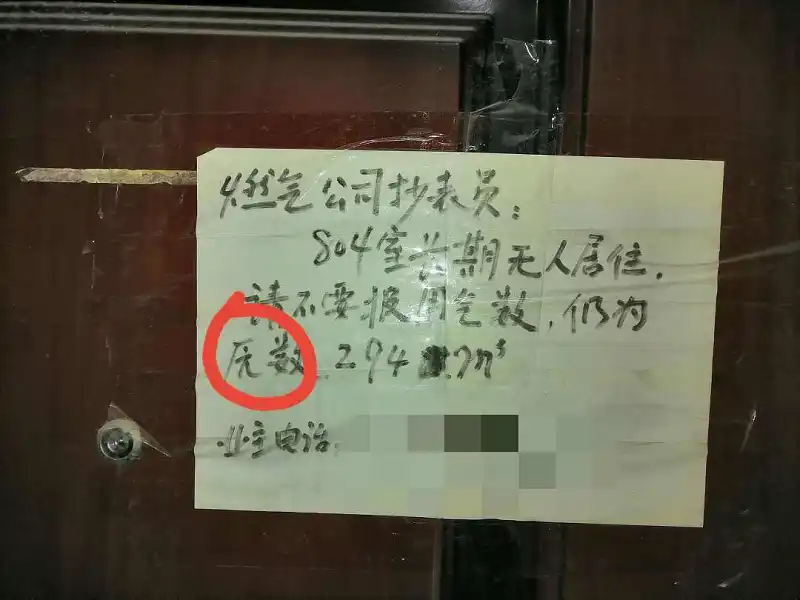 燃气公司抄表员：
804室长期无人居住，
请不要报用气数，仍为
原数 294 m³
业主电话：